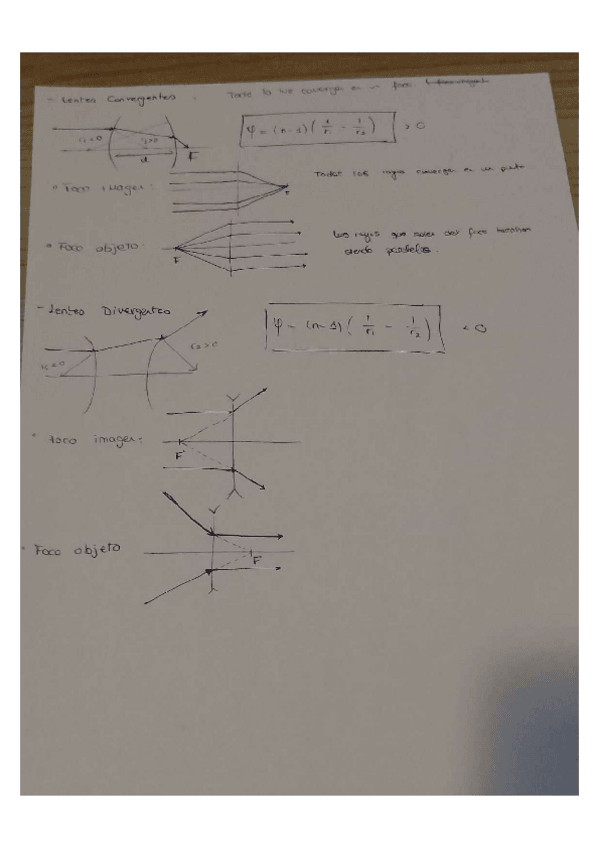 - Lentes Convergentes : Toda la luz converge en un foco.
r₁>0 r₂<0
d F
φ = (n-1) ( 1/r₁ - 1/r₂ ) > 0
• Foco imagen: Todos los rayos convergen en un punto
F
• Foco objeto: Los rayos que salen del foco terminan
siendo paralelos.
F
- Lentes Divergentes
φ = (n-1) ( 1/r₁ - 1/r₂ ) < 0
r₁<0 r₂>0
• Foco imagen:
F
• Foco objeto
F